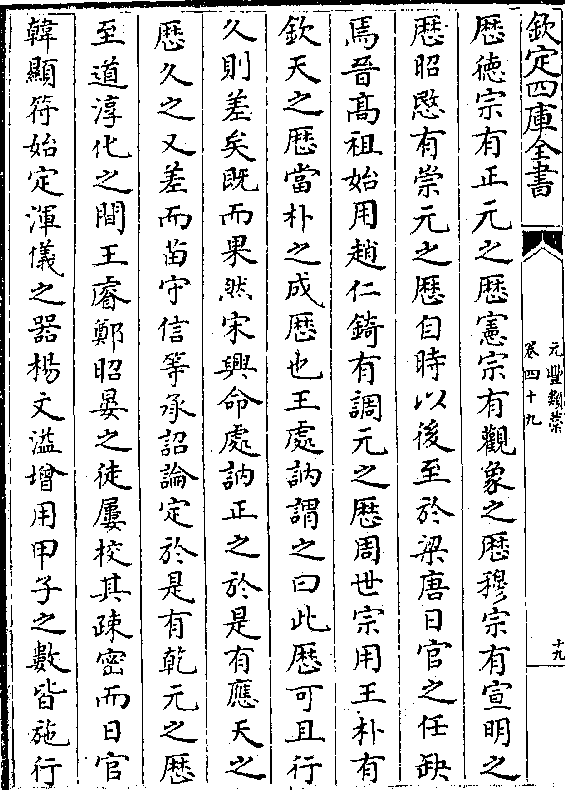 欽定四庫全書
元豐類藁
卷四十九
十九
歴徳宗有正元之歴憲宗有觀象之歴穆宗有宣明之
歴昭愍有崇元之歴自時以後至於梁唐日官之任缺
焉晉髙祖始用趙仁錡有調元之歴周世宗用王朴有
欽天之歴當朴之成歴也王處訥謂之曰此歴可且行
久則差矣既而果然宋興命處訥正之於是有應天之
歴久之又差而苗守信等承詔論定於是有乾元之歴
至道淳化之間王睿鄭昭晏之徒屢校其疎密而日官
韓顯符始定渾儀之器楊文溢增用甲子之數皆施行